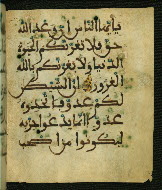 يأيها الناس إن وعد الله
حق فلا تغرنكم الحيوة
الدنيا ولا يغرنكم بالله
الغرور إن الشيطن
لكم عدو فاتخذوه
عدوا إنما يدعوا حزبه
ليكونوا من أصحب